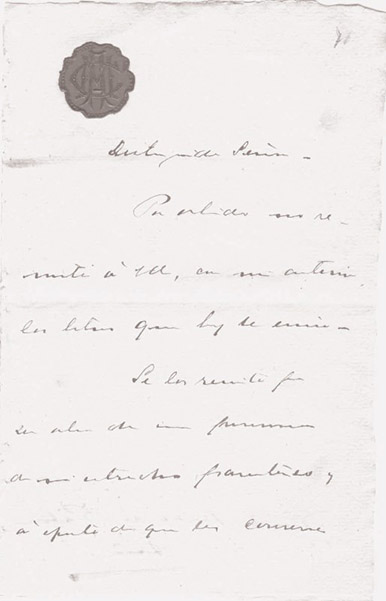 Distinguida Señora –
Por olvido no re-
mití à Ud, en mi anterior
las letras que hoy le envio –
Se las remito por
ser de una persona
de mi estrecho parentesco y
à efecto de que las conserve